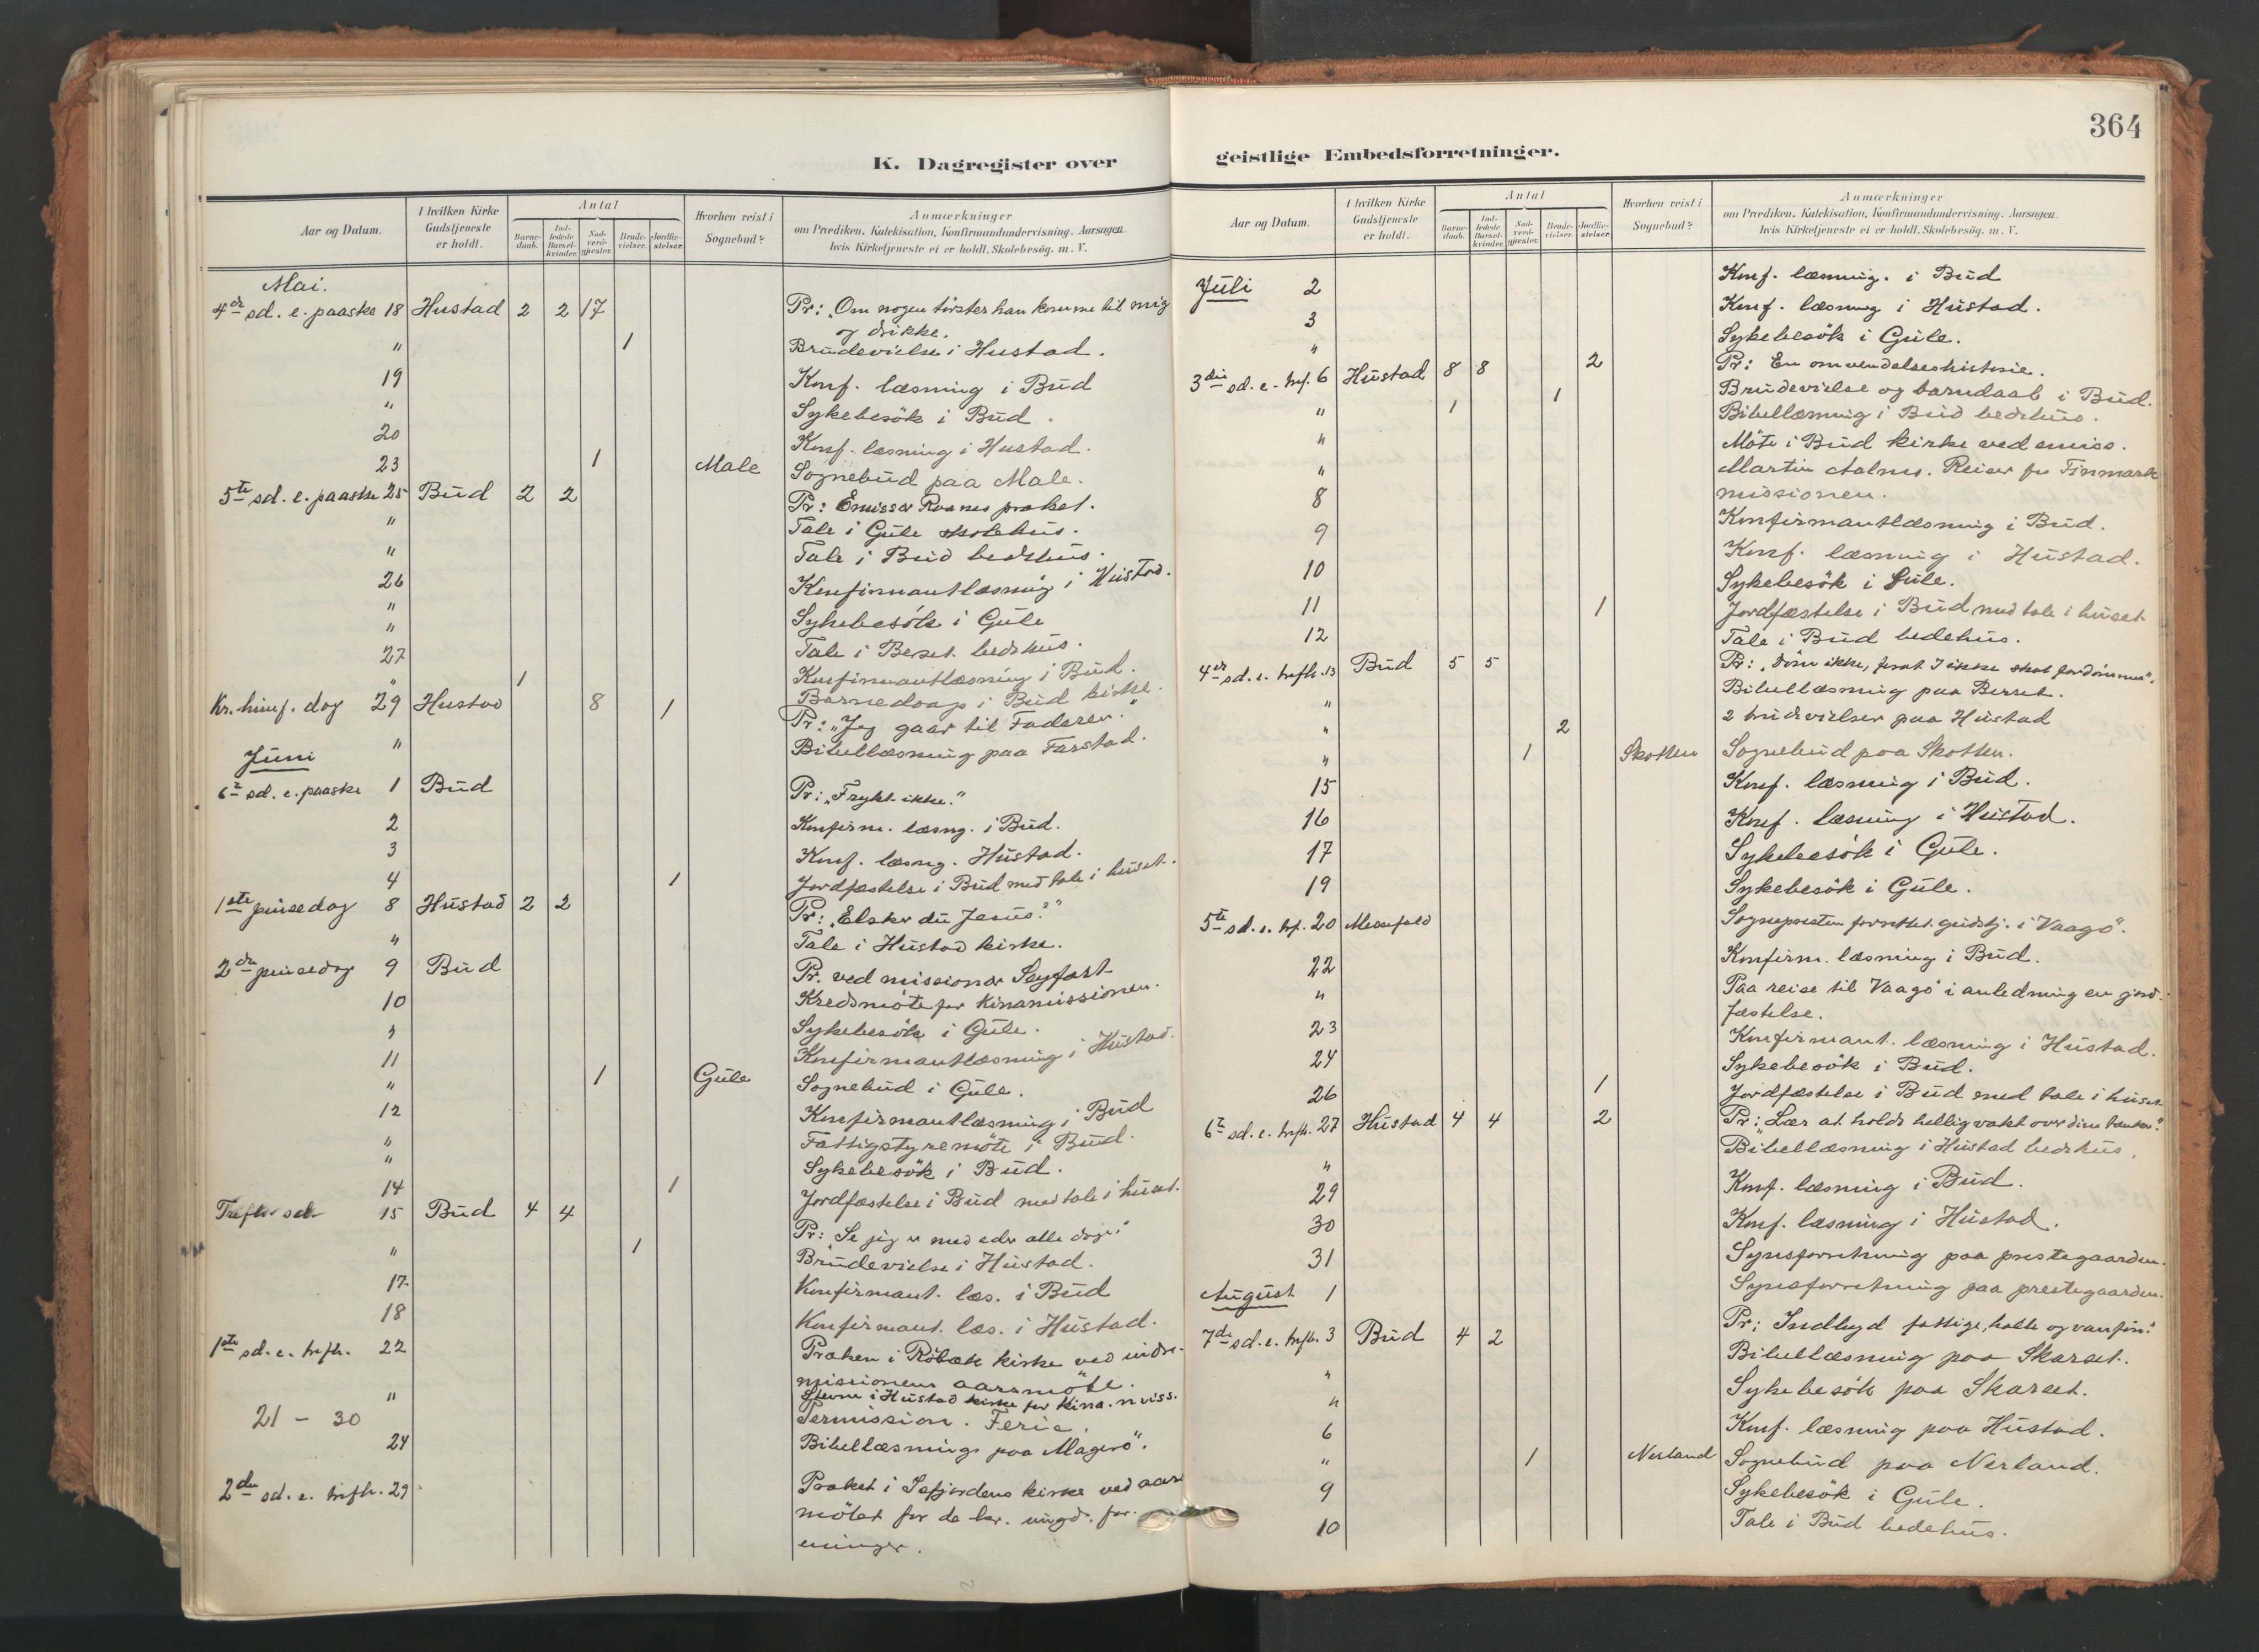 K. Dagregister over
Aar og Datum.
I hvilken Kirke Gudstjeneste er holdt.
Antal
Barne-daab.
Ind-ledede Barsel-kvinder.
Nad-verd-gjæster.
Brude-vielser.
Jordfæ-stelser.
Hvorhen reist i Sognebud?
Anmærkninger
om Prædiken, Katekisation, Konfirmandundervisning. Aarsagen
hvis Kirketjeneste ei er holdt, Skolebesög. m. V.
Mai.
4de sd. e. paaske 18 Hustad 2 2 17 Pr: "Om nogen törster han komme til mig
og drikke.
" 1 Brudevielse i Hustad.
19 Konf. læsning i Bud
" Sykebesök i Bud.
20 Konf. læsning i Hustad.
23 1 Male Sognebud paa Male.
5te sd. e. paaske 25 Bud 2 2 Pr: Emissær Roanes præket.
" Tale i Gule skolehus.
" Tale i Bud bedehus.
26 Konfirmantlæsning i Hustad.
" Sykebesök i Gule
" Tale i Berset bedehus.
27 Konfirmantlæsning i Bud.
" 1 Barnedaap i Bud kirke.
Kr. himf. dag 29 Hustad 8 1 Pr: "Jeg gaar til Faderen."
" Bibellæsning paa Farstad.
Juni
6te sd. e. paaske 1 Bud Pr: "Frykt ikke."
2 Konfirm. læsng. i Bud.
3 Konf. læsng. Hustad.
4 1 Jordfæstelse i Bud med tale i huset.
1ste pinsedag 8 Hustad 2 2 Pr: "Elsker du Jesus?"
" Tale i Hustad kirke.
2den pinsedag 9 Bud Pr. ved missionær Seyfart
10 Kredsmöte for Kinamissionen.
" Sykebesök i Gule.
11 Konfirmantlæsning i Hustad.
" 1 Gule Sognebud i Gule.
12 Konfirmantlæsning i Bud
" Fattigstyremöte i Bud.
" Sykebesök i Bud.
14 1 Jordfæstelse i Bud med tale i huset.
Trefh. sd. 15 Bud 4 4 Pr: "Se jeg er med eder alle dage."
" 1 Brudevielse i Hustad.
17 Konfirmant. læs. i Bud
18 Konfirmant. læs. i Hustad.
1ste sd. e. trefh. 22 Præken i Röbæk kirke ved indre-
missionens aarsmöte.
" Stevne i Hustad kirke for Kina. miss.
21 - 30 Permission. Ferie.
24 Bibellæsning paa Magerö.
2den sd. e. trefh. 29 Præket i Isfjordens kirke ved aars
mötet for de kr. ungd. for-
eninger.
364
geistlige Embedsforretninger.
Aar og Datum.
I hvilken Kirke Gudstjeneste er holdt.
Antal
Barne-daab.
Ind-ledede Barsel-kvinder.
Nad-verd-gjæster.
Brude-vielser.
Jordfæ-stelser.
Hvorhen reist i Sognebud?
Anmærkninger
om Prædiken, Katekisation, Konfirmandundervisning. Aarsagen
hvis Kirketjeneste ei er holdt, Skolebesög. m. V.
Juli 2 Konf. læsning. i Bud
3 Konf. læsning i Hustad.
" Sykebesök i Gule.
3die sd. e. trf. 6 Hustad 8 8 2 Pr: En omvendelseshistorie.
" 1 1 Brudevielse og barndaab i Bud.
" Bibellæsning i Bud bedehus.
" Möte i Bud kirke ved emiss.
Martin Aalmo. Reiser for Finmark
missionen.
8 Konfirmantlæsning i Bud.
9 Konf. læsning i Hustad.
10 Sykebesök i Gule.
11 1 Jordfæstelse i Bud med tale i huset
12 Tale i Bud bedehus.
4de sd. e. trefh. 13 Bud 5 5 Pr: "Döm ikke, forat I ikke skal fordömmes".
" Bibellæsning paa Berset.
" 2 2 brudevielser paa Hustad
" 1 Skotten Sognebud paa Skotten.
15 Konf. læsning i Bud.
16 Konf. læsning i Hustad.
17 Sykebesök i Gule.
19 Sykebesök i Gule.
5te sd. e. trf. 20 Messefald Sognepresten forrettet gudstj. i Vaagö.
22 Konfirm. læsning i Bud.
" Paa reise til Vaagö i anledning en jord-
fæstelse.
23 Konfirmant. læsning i Hustad.
24 Sykebesök i Bud.
26 1 Jordfæstelse i Bud med tale i huset
6te sd. e. trefh. 27 Hustad 4 4 2 Pr: "Lær at holde hellig vakt over dine tanker."
" Bibellæsning i Hustad bedehus.
29 Konf. læsning i Bud.
30 Konf. læsning i Hustad.
31 Synsforretning paa prestegaarden.
August 1 Synsforretning paa prestegaarden.
7de sd. e. trefh. 3 Bud 4 2 Pr: Indbyd fattige, halte og vanför."
" Bibellæsning paa Skarset.
" Sykebesök paa Skarset.
6 Konf. læsning paa Hustad.
" 1 Nerland Sognebud paa Nerland.
9 Sykebesök i Gule.
10 Tale i Bud bedehus.